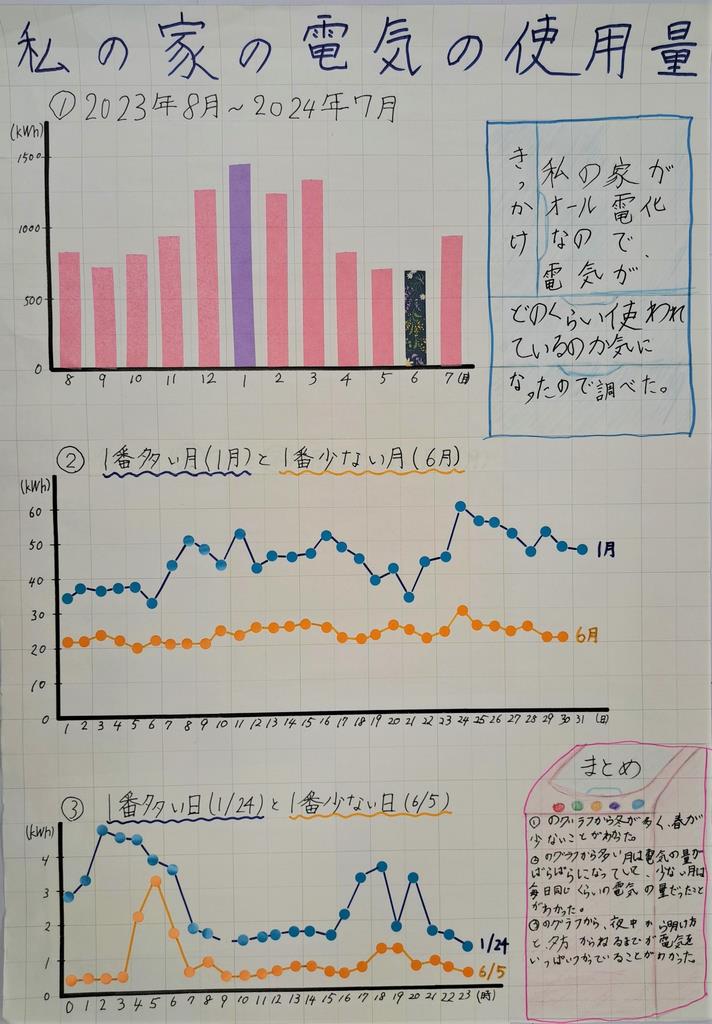 私の家の電気の使用量
①2023年8月～2024年7月
(kWh)
1500
1000
500
0
8 9 10 11 12 1 2 3 4 5 6 7(月)
きっかけ
私の家が
オール電化
なので、
電気が
どのくらい使われ
ているのか気に
なったので調べた。
② 1番多い月(1月)と1番少ない月(6月)
(kWh)
60
50
40
30
20
10
0
1月
6月
1 2 3 4 5 6 7 8 9 10 11 12 13 14 15 16 17 18 19 20 21 22 23 24 25 26 27 28 29 30 31 (日)
③ 1番多い日(1/24)と1番少ない日(6/5)
(kWh)
4
3
2
1
0
1/24
6/5
0 1 2 3 4 5 6 7 8 9 10 11 12 13 14 15 16 17 18 19 20 21 22 23 (時)
まとめ
①のグラフから冬が多く、春が
少ないことがわかった。
②のグラフから多い月は電気の量が
ばらばらになっていて、少ない月は
毎日同じくらいの電気の量だったことが
わかった。
③のグラフから、夜中から明け方
と、夕方からねるまでが電気を
いっぱいつかっていることがわかった。